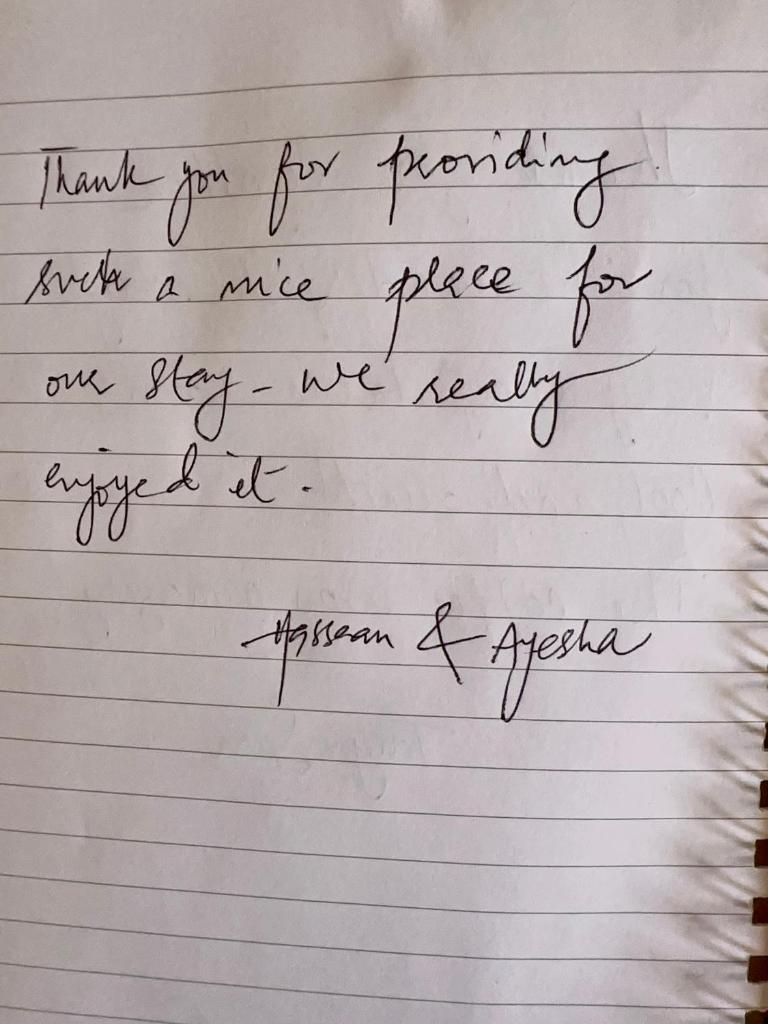 Thank you for providing
such a nice place for
our stay - we really
enjoyed it.
Hassaan & Ayesha